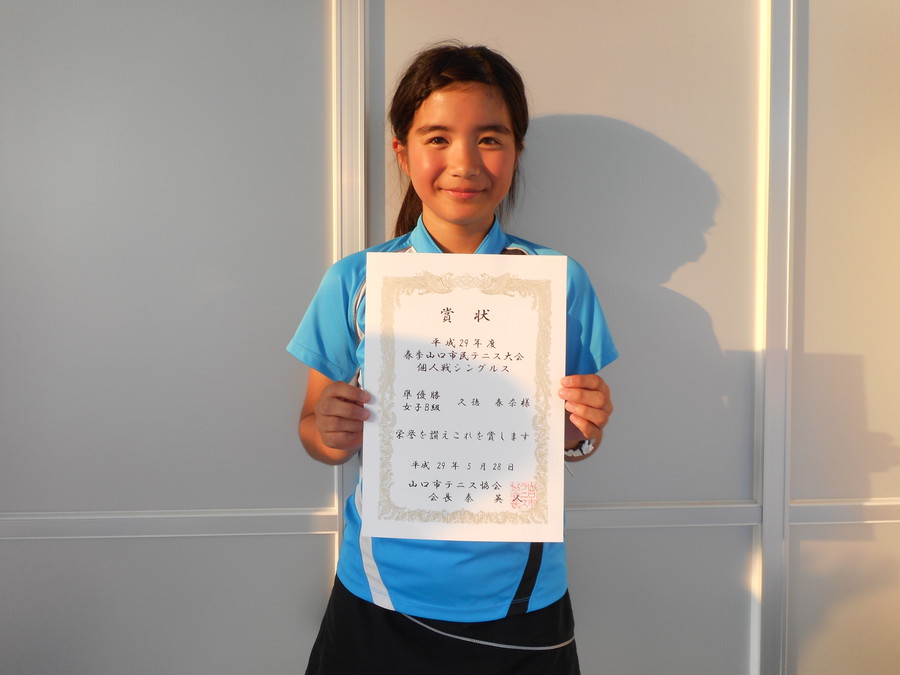 賞状
平成29年度
春季山口市民テニス大会
個人戦シングルス
準優勝
女子B級 久徳 春奈様
栄誉を讃えこれを賞します
平成 29 年 5 月 28 日
山口市テニス協会
会長 秦 英人